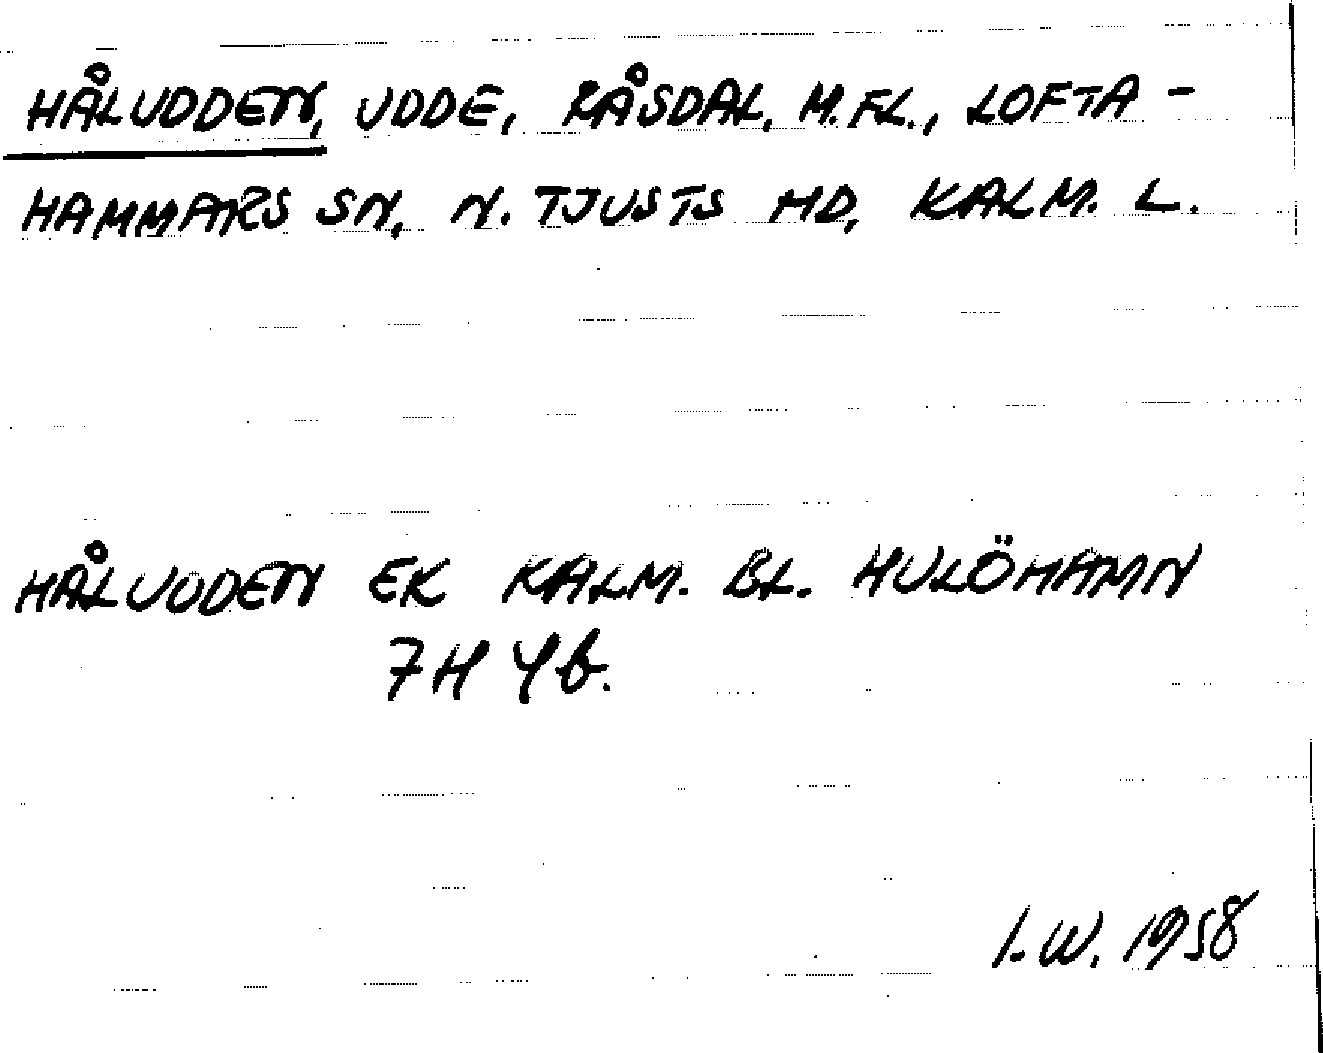 HÅLUDDEN, UDDE, RÅSDAL, M.FL., LOFTA-
HAMMARS SN, N. TJUSTS HD, KALM. L.
HÅLUDDEN EK KALM. BL. HULÖHAMN
7H 4b.
I.W. 1958